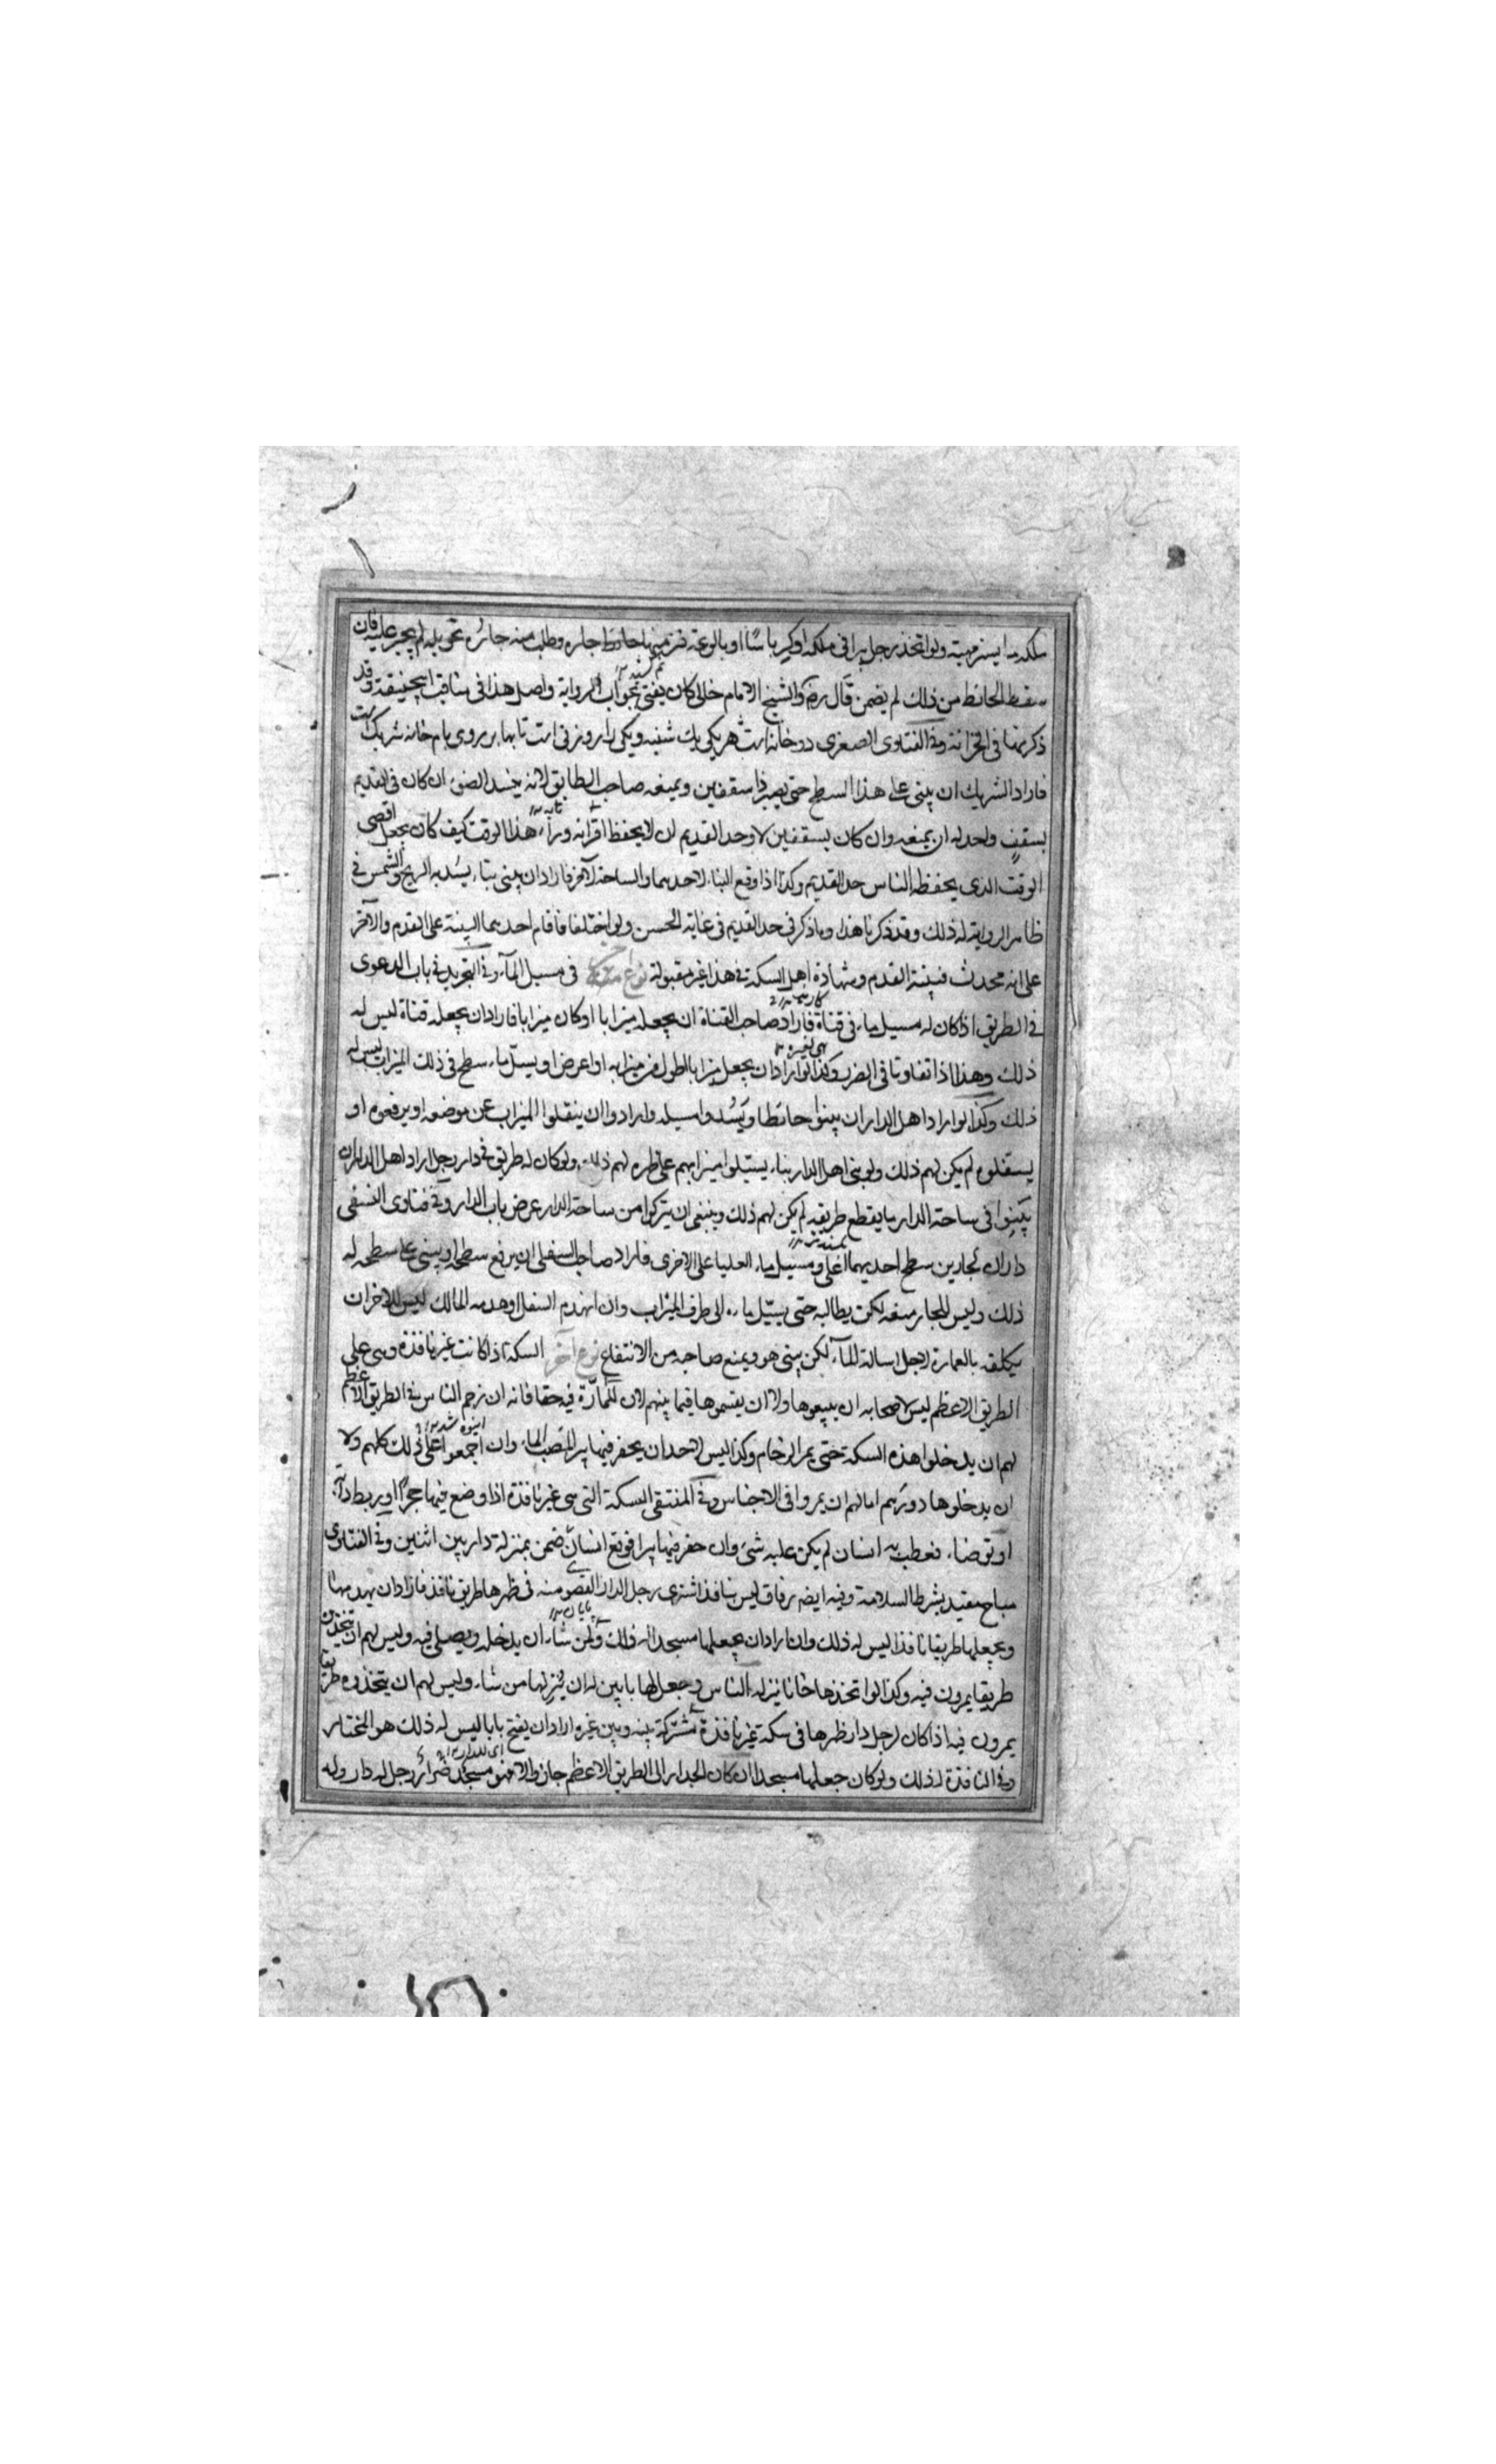 ملكه ولو اتخذ رجل بيرا فى ملكه او كرباسا او بالوعة فنز منها حائط جاره وطلب منه جاره تحويله لم يجبر عليه فان
سقط الحائط من ذلك لم يضمن قال رض والشيخ الامام خالى كان يفتى بجواب الرواية واصل هذا فى مناقب ابيحنيفة وقد
ذكرنها فى الخزانة وفى الفتاوى الصغرى دو خانه است هر يكى يك شنبه ويكى را تابها بر روى بام خانه شريك است
فاراد الشريك ان يبنى على هذا السطح حتى يصير ذا سقفين ويمنعه صاحب الطابق لانه يفسد الضوء ان كان فى القديم
بسقف واحد له ان يمنعه وان كان بسقفين لا وحد القديم ان لا يحفظ اقرانه وراء هذا الوقت كيف كان يجعل اقصى
الوقت الذى يحفظه الناس حد القديم وكذا اذا وقع البناء لاحدهما والساحة لآخر فاراد ان يبنى بناء يسد به الريح والشمس فى
ظاهر الرواية له ذلك وقد ذكرنا هذا وما ذكر فى حد القديم فى غاية الحسن ولو اختلفا فاقام احدهما البينة على القدم والآخر
على انه محدث فبينة القدم وشهادة اهل السكة فى هذا غير مقبولة نوع فى مسيل الماء وفى التجريد فى باب الدعوى
فى الطريق اذا كان له مسيل ماء فى قناة فاراد صاحب القناة ان يجعله ميزابا او كان ميزابا فاراد ان يجعله قناة ليس له
ذلك وهذا اذا تفاوتا فى الضرر وكذا لو اراد ان يجعل ميزابا اطول من ميزابه او اعرض او يسيل ماء سطح فى ذلك الميزاب ليس له
ذلك وكذا لو اراد اهل الدار ان يبنوا حائطا ويسدوا مسيله وارادوا ان ينقلوا الميزاب عن موضعه او يرفعوه او
يسفلوه لم يكن لهم ذلك ولو بنى اهل الدار بناء يستيلوا ميزابهم على ظهره لهم ذلك ولو كان له طريق فى دار رجل اراد اهل الدار ان
يبنوا فى ساحة الدار ما يقطع طريقه لم يكن لهم ذلك وينبغى ان يتركوا من ساحة الدار عرض باب الدار وفى فتاوى النسفى
داران لجارين سطح احديهما اعلى ومسيل ماء العليا على الاخرى فاراد صاحب السفلى ان يرفع سطحه او يبنى على سطحه له
ذلك وليس للجار منعه لكن يطالبه حتى يسيل ماءه الى طرف الميزاب وان انهدم السفل او هدمه المالك ليس للاخر ان
يكلفه بالعمارة لاجل اسالة الماء لكن يبنى هو ويمنع صاحبه من الانتفاع نوع آخر السكة اذا كانت غير نافذة وهى على
الطريق الاعظم ليس لاصحابه ان يبيعوها ولا ان يقسموها فيما بينهم لان للمارة فيه حقا فانه ان زحم الناس فى الطريق الاعظم
لهم ان يدخلوا هذه السكة حتى يمر الزحام وكذا ليس لاحد ان يحفر فيها بيرا لصب الماء وان اجمعوا على ذلك كلهم ولا
ان يدخلوها دورهم امالهم ان يمروا فى الاجناس وفى المنتقى السكة التى هى غير نافذة اذا وضع فيها حجرا او يربط دابة
او توضاء فعطب به انسان لم يكن عليه شئ وان حفر فيها بيرا فوقع انسان ضمن بمنزلة دار بين اثنين وفى الفتاوى
مباح مقيد بشرط السلامة وفيه ايضه زقاق ليس بنافذ اشترى رجل الدار القصوى منه فى ظهرها طريق نافذ فاراد ان يهدمها
ويجعلها طريقا نافذا ليس له ذلك وان اراد ان يجعلها مسجدا له ذلك ولمن شاء ان يدخله ويصلى فيه وليس لهم ان يتخذوه
طريقا يمرون فيه وكذا لو اتخذها خانا ينزله الناس وجعل لها بابين له ان ينزلها من شاء وليس لهم ان يتخذوه طريقا
يمرون فيه اذا كان لرجل دار ظهرها فى سكة غير نافذة مشتركة بينه وبين غيره اراد ان يفتح بابا ليس له ذلك هو المختار
وفى النافذة له ذلك ولو كان جعلها مسجدا ان كان الجدار الى الطريق الاعظم جاز والا فهو مسجد ضرار رجل له دار وله